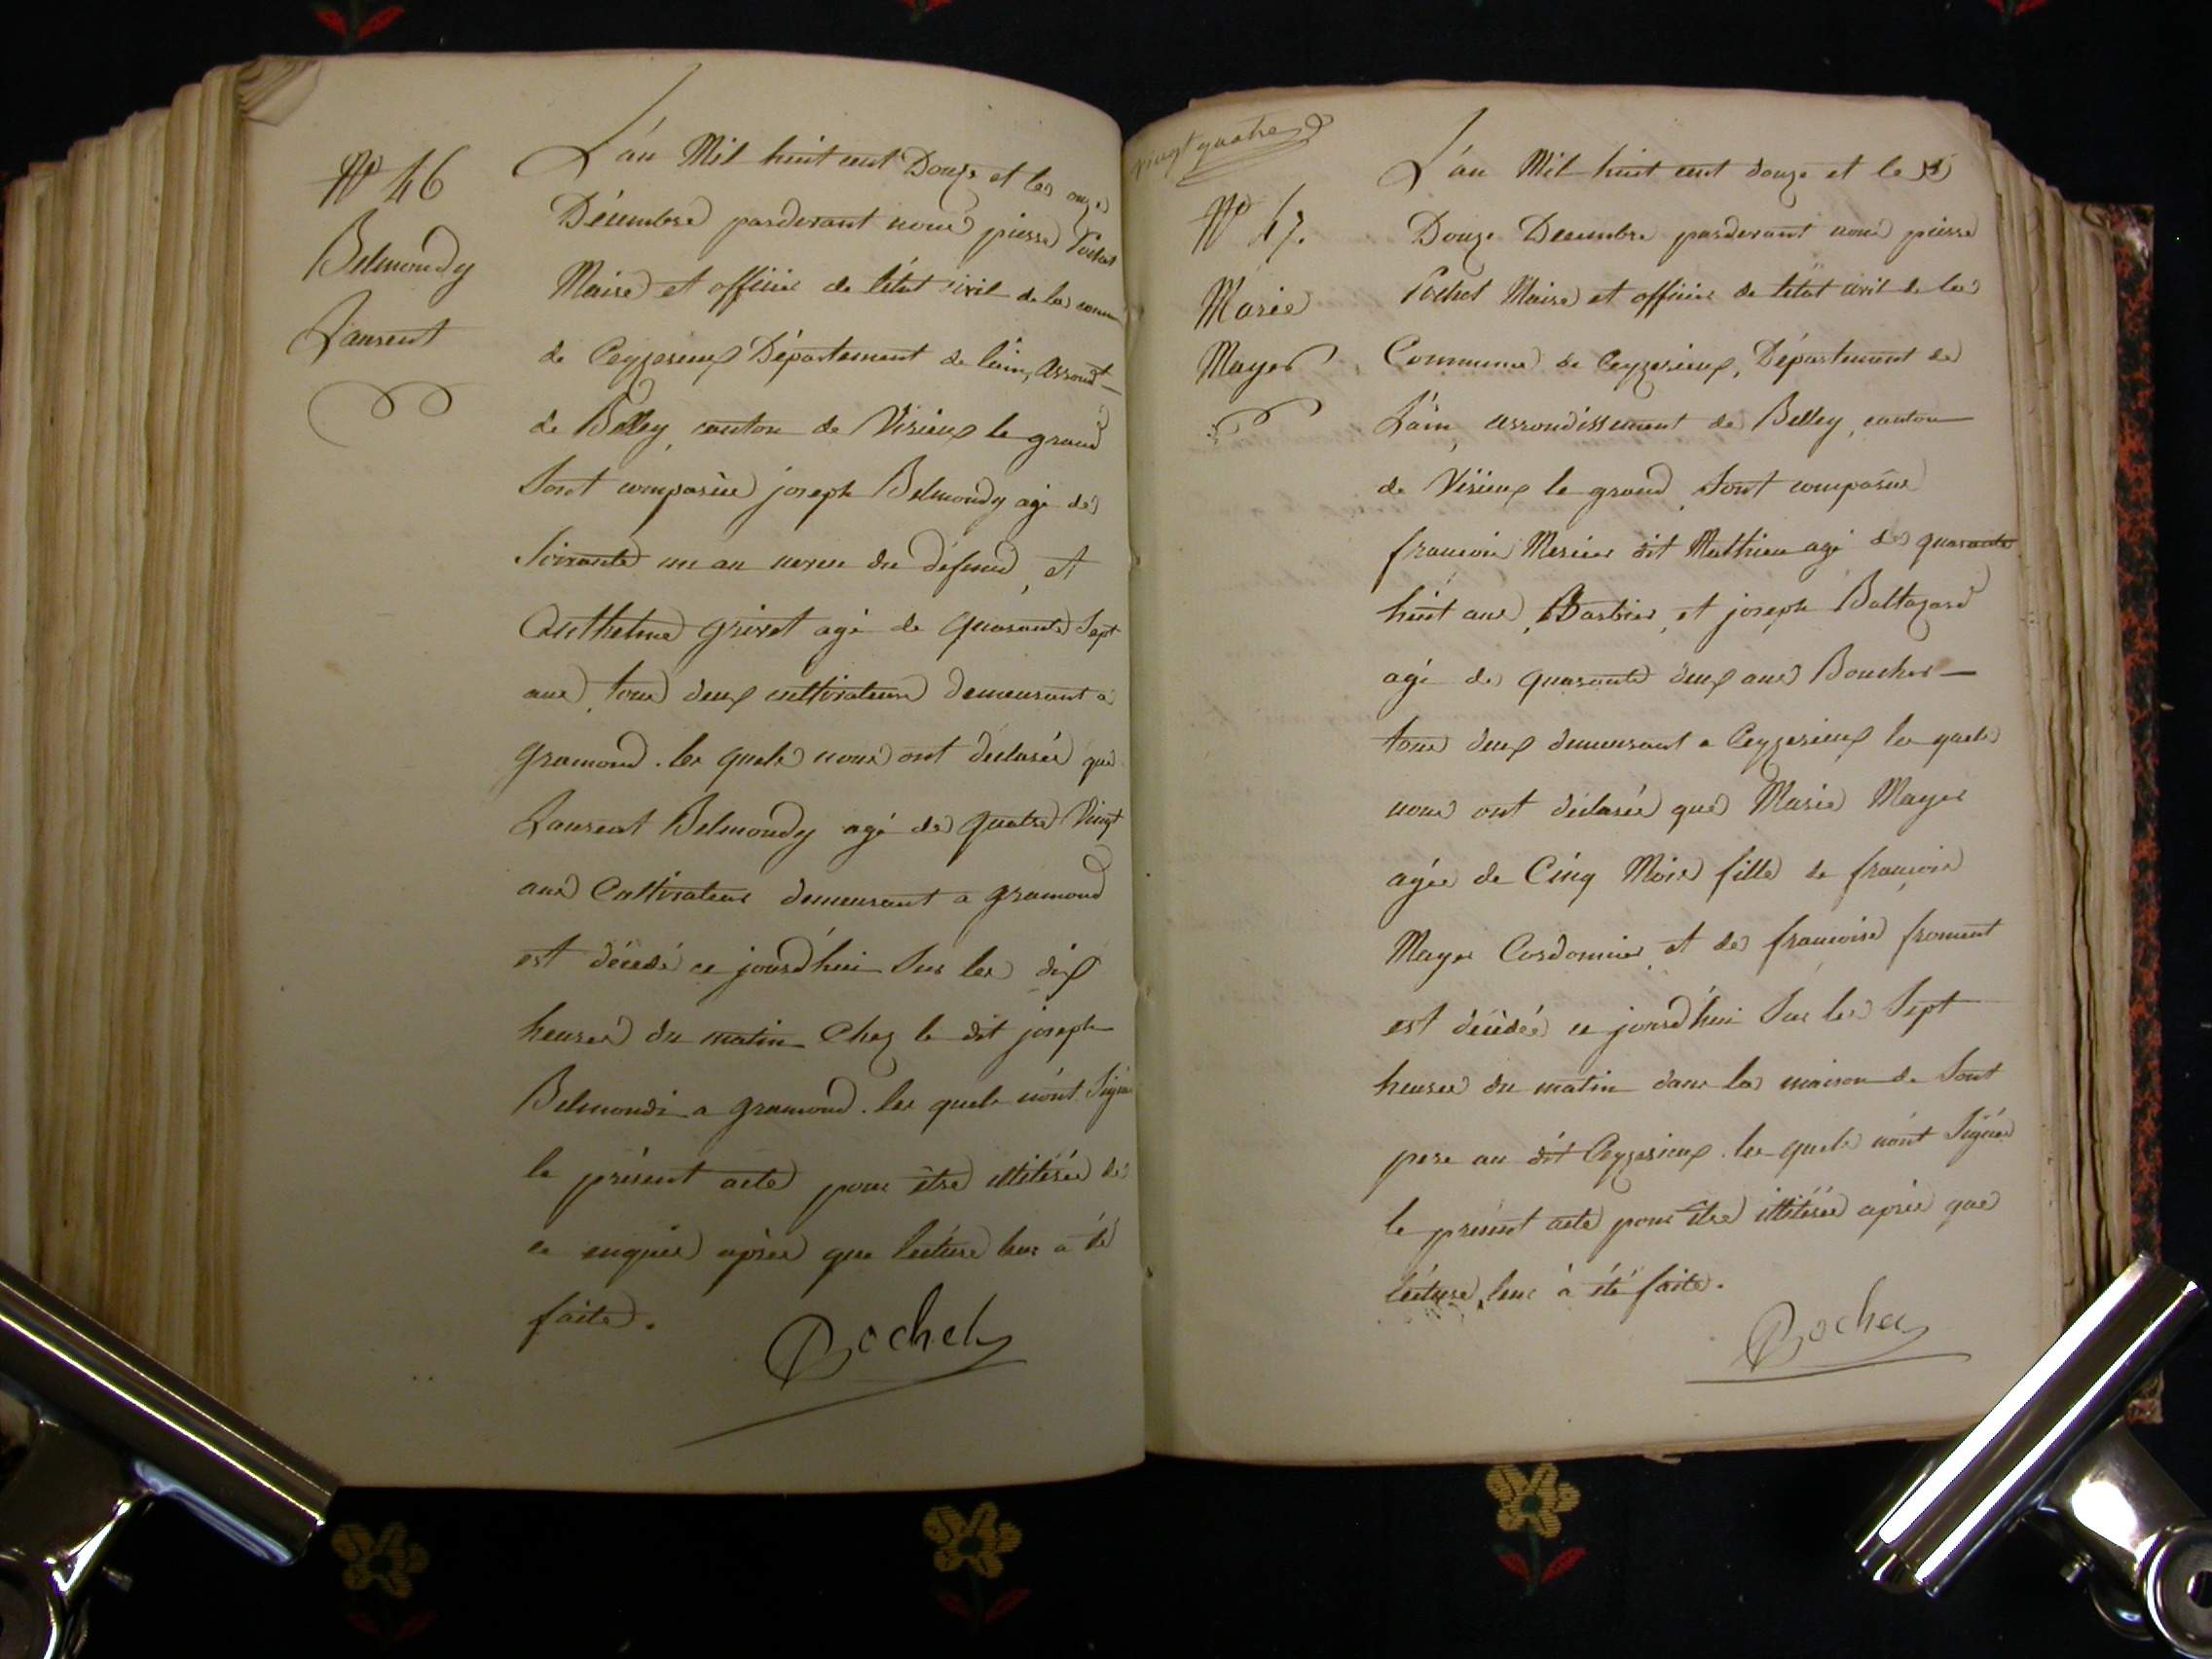 N° 46
Belmondy
Laurent
L'an Mil huit cent Douze et les onze
Décembre pardevant nous pierre Pochet
Maire et officier de l'état civil de la comm
de Ceyzerieux Département de l'ain, arrond.t
de Belley, canton de Virieux le grand
Sont comparus joseph Belmondy agé de
Soixante un an neveu du défunt, et
Anthelme grivet agé de quarante Sept
ans, tous deux cultivateurs demeurant à
gramond. les quels nous ont déclarés que
Laurent Belmondy agé de quatre Vingt
ans Cultivateur demeurant a gramond
est décédé ce jourd'hui Sur les dix
heures du matin Chez le dit joseph
Belmondi a gramond. les quels n'ont Signé
le présent acte pour être illitérés de
ce enquis après que lecture leur a été
faite.
Pochet
vingt quatre
N° 47.
Marie
Mayer
L'an Mil huit cent douze et le
Douze Decembre pardevant nous pierre
Pochet Maire et officier de l'état civil de la
Commune de Ceyzerieux, Département de
L'ain, arrondissement de Belley, canton
de Virieux le grand, Sont comparus
francois Mercier dit Mathieu agé de quarante
huit ans, Barbier, et joseph Baltazard
agé de quarante deux ans Boucher
tous deux demeurant a Ceyzerieux les quels
nous ont déclarés que Marie Mayer
agée de Cinq Mois fille de francois
Mayer Cordonnier et de francoise froment
est décédée ce jourd'hui Sur les Sept
heures du matin dans la maison de Sont
pere au dit Ceyzerieux. les quels n'ont Signés
le présent acte pour être illitérés après que
lecture leur à été faite.
Pochet